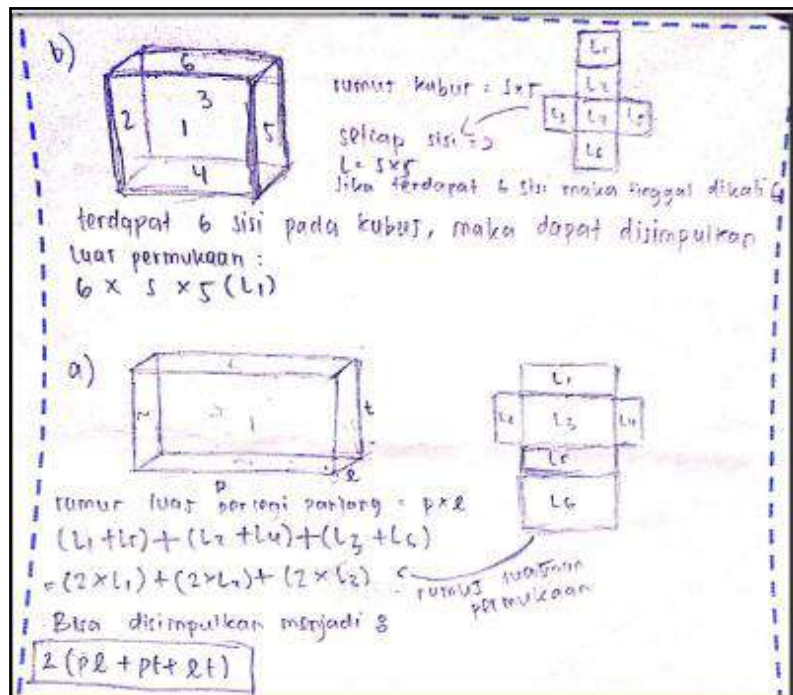 b)
6
3
2
1
5
4
rumus kubus = s x s
L1
L2
L3 L4 L5
L6
setiap sisi =>
L = s x s
Jika terdapat 6 sisi maka tinggal dikali 6
terdapat 6 sisi pada kubus, maka dapat disimpulkan
luas permukaan :
6 x s x s (L1)
a)
1
t
p
l
L1
L2 L3 L4
L5
L6
rumus luas persegi panjang = p x l
(L1 + L5) + (L2 + L4) + (L3 + L6)
= (2 x L1) + (2 x L2) + (2 x L3)
rumus
permukaan
Bisa disimpulkan menjadi :
2 (pl + pt + lt)